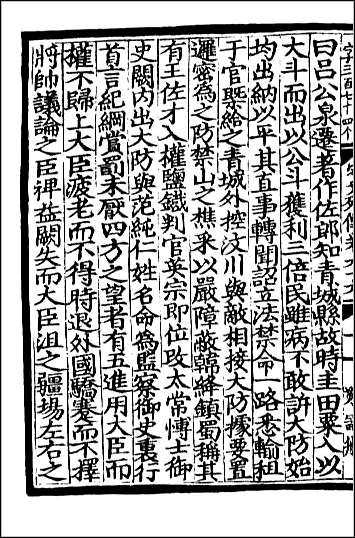 曰吕公泉遷著作佐郎知青城縣故時圭田粟入以
大斗而出以公斗獲利三倍民雖病不敢訴大防始
均出納以平其直事轉聞詔立法禁命一路悉輸租
于官槩給之青城外控汶川與敵相接大防據要置
邏密為之防禁山之樵采以嚴障蔽韓絳鎮蜀稱其
有王佐才入權鹽鐵判官英宗即位改太常博士御
史闕内出大防與范純仁姓名命為監察御史裏行
首言紀綱賞罰未厭四方之望者有五進用大臣而
權不歸上大臣疲老而不得時退外國驕蹇而不擇
將帥議論之臣裨益闕失而大臣沮之疆場左右之